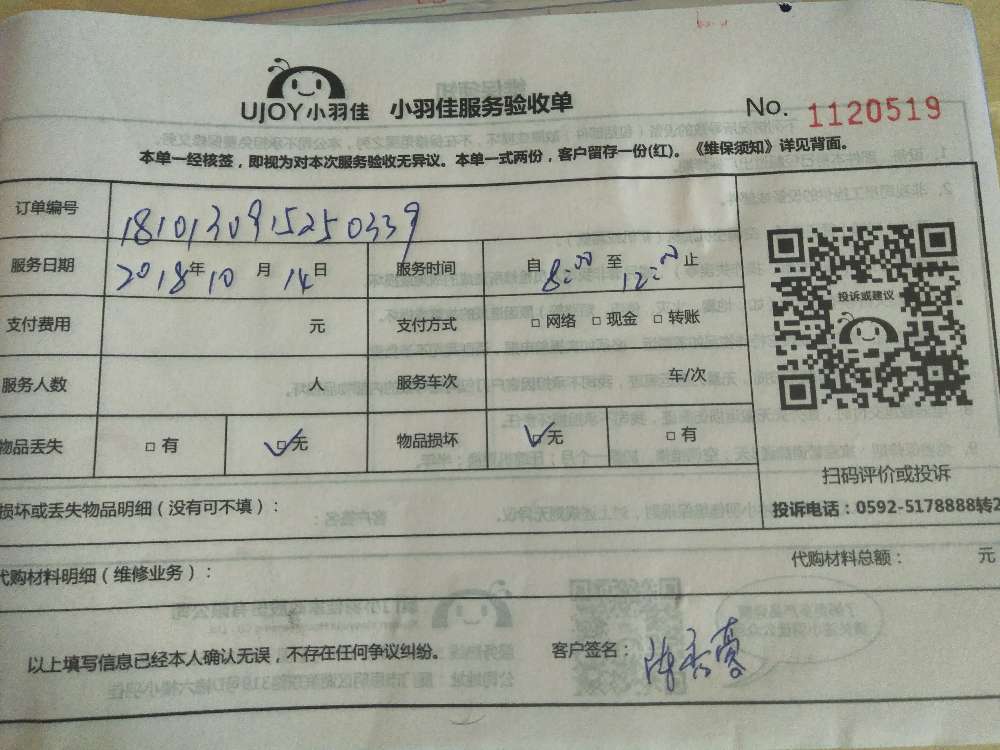 UJOY小羽佳 小羽佳服务验收单 No. 1120519
本单一经核签，即视为对本次服务验收无异议。本单一式两份，客户留存一份(红)。《维保须知》详见背面。
订单编号 1810130915250339
服务日期 2018年10月14日 服务时间 自8:00至12:00止
支付费用 元 支付方式 □网络 □现金 □转账
投诉或建议
服务人数 人 服务车次 车/次
物品丢失 □有 ☑无 物品损坏 ☑无 □有
扫码评价或投诉
投诉电话：0592-5178888转2
损坏或丢失物品明细（没有可不填）：
代购材料明细（维修业务）： 代购材料总额： 元
以上填写信息已经本人确认无误，不存在任何争议纠纷。 客户签名：